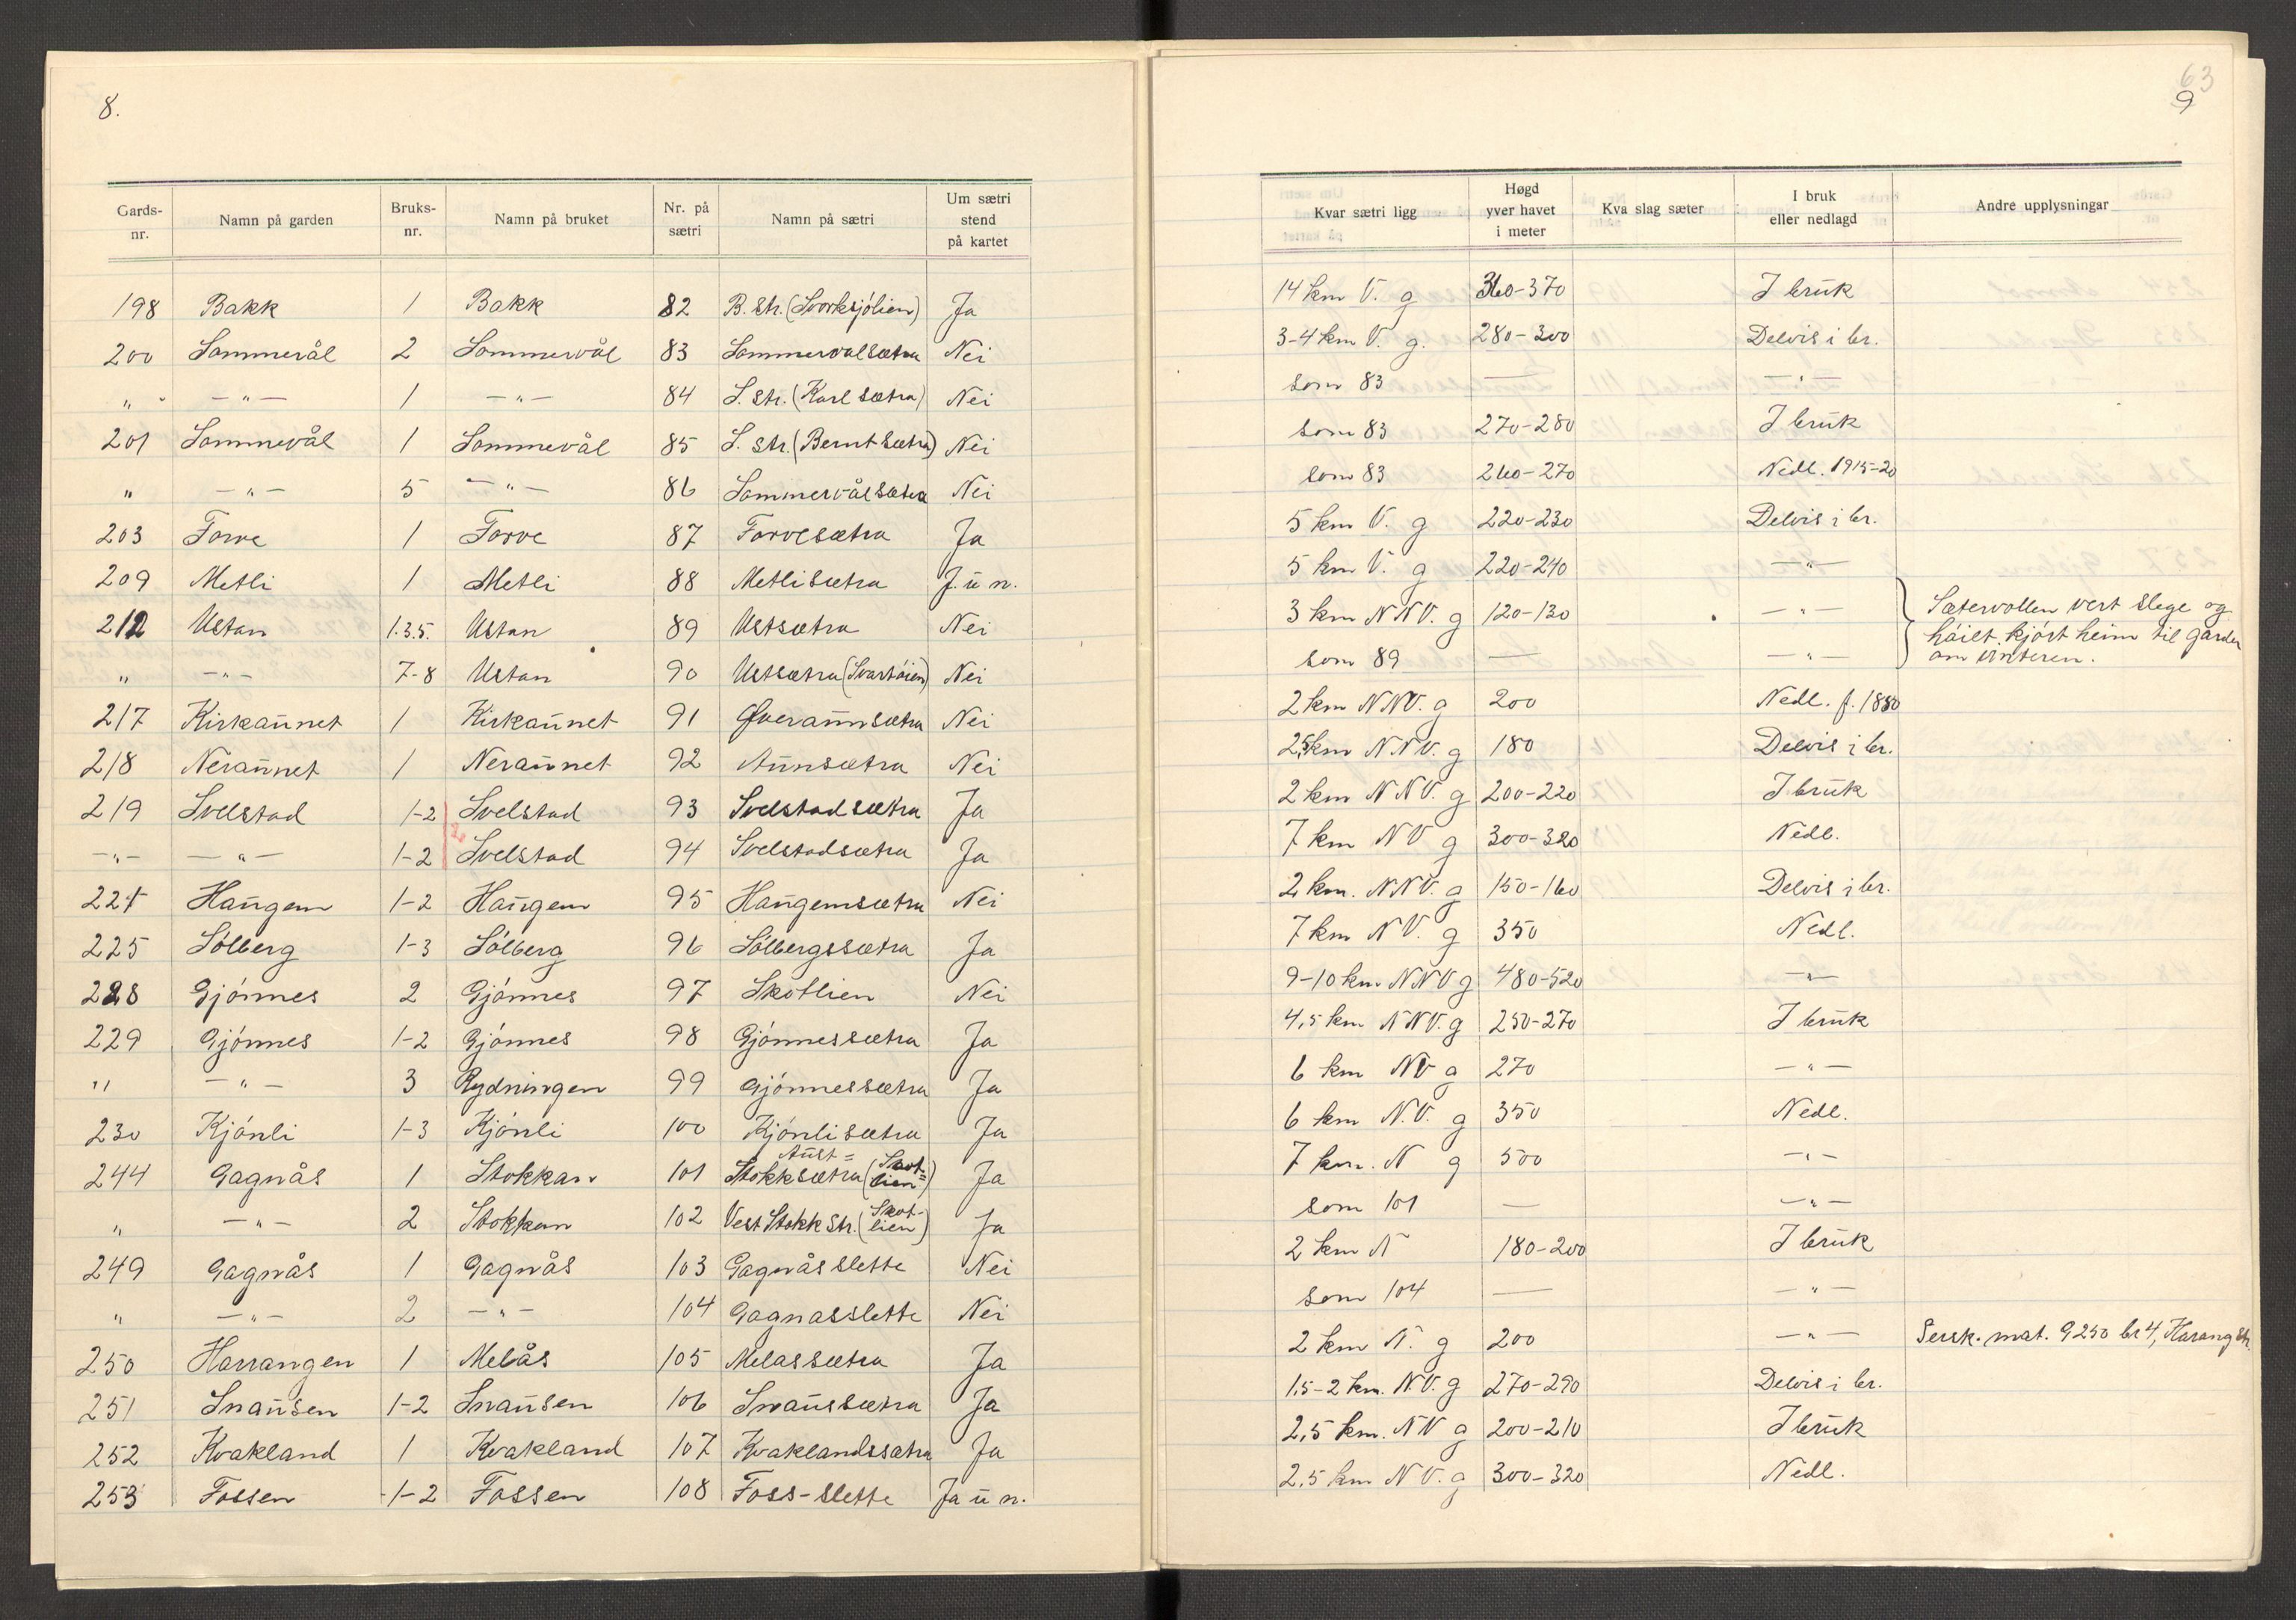 8.
Gards-nr. Namn på garden Bruks-nr. Namn på bruket Nr. på sætri Namn på sætri Um sætri stend på kartet
198 Bakk 1 Bakk 82 B. str. (Svorksjölien) Ja
200 Sommerål 2 Sommervål 83 Sommervalsætra Nei
" -"- 1 -"- 84 S. str. (Karl sætra) Nei
201 Sommevål 1 Sommevål 85 S. str. (Bernt sætra) Nei
" -"- 5 -"- 86 Sommervålsætra Nei
203 Torve 1 Torve 87 Torvesætra Ja
209 Metli 1 Metli 88 Metlisætra J. u n.
212 Ustan 1.3.5. Ustan 89 Ustsætra Nei
" -"- 7-8 Ustan 90 Ustsætra (Svartöien) Nei
217 Kirkaunnet 1 Kirkaunnet 91 Överaunnsætra Nei
218 Neraunnet 1 Neraunnet 92 Aunnsætra Nei
219 Svelstad 1-2 Svelstad 93 Svelstadsætra Ja
-"- -"- 1-2 Svelstad 94 Svelstadsætra Ja
221 Haugem 1-2 Haugem 95 Haugemsætra Nei
225 Sólberg 1-3 Sólberg 96 Sólbergssætra Ja
228 Gjónnes 2 Gjónnes 97 Skotlien Nei
229 Gjónnes 1-2 Gjónnes 98 Gjónnessætra Ja
" -"- 3 Rydningen 99 Gjónnessætra Ja
230 Kjónli 1-3 Kjónli 100 Kjónlisætra Ja
244 Gagnås 1 Stokkan 101 Aust= Stokksætra (Skot=lien) Ja
" -"- 2 Stokkan 102 Vest Stokk str. (Skot-lien) Ja
249 Gagnås 1 Gagnås 103 Gagnåsslette Nei
" -"- 2 -"- 104 Gagnasslette Nei
250 Harrangen 1 Melås 105 Melassætra Ja
251 Snausen 1-2 Snausen 106 Snaussætra Ja
252 Kvakland 1 Kvakland 107 Kvaklandssætra Ja
253 Fossen 1-2 Fossen 108 Foss-slette Ja u n.
63
9
Kvar sætri ligg Høgd yver havet i meter Kva slag sæter I bruk eller nedlagd Andre upplysningar
14 km V. g 360-370 I bruk
3-4 km V. g. 280-300 Delvis i br.
som 83 — -"-
som 83 270-280 I bruk
som 83 260-270 Nedl. 1915-20
5 km V. g 220-230 Delvis i br.
5 km V. g 220-240 -"-
3 km NNV. g 120-130 -"- Sætervollen vert slege og
som 89 — -"- höiet kjört heim til garden
om vinteren.
2 km NNV. g 200 Nedl. f. 1880
2,5 km NNV. g 180 Delvis i br.
2 km NNV. g 200-220 I bruk
7 km NV g 300-320 Nedl.
2 km. NNV. g 150-160 Delvis i br.
7 km NV. g 350 Nedl.
9-10 km NNV g 480-520 -"-
4,5 km NNV. g 250-270 I bruk
6 km NV g 270 -"-
6 km N.V. g 350 Nedl.
7 km. N g 500 -"-
som 101 — -"-
2 km N 180-200 I bruk
som 104 — -"-
2 km N. g 200 -"- Sersk. mat. g 250 br 4, Harang str.
1,5-2 km. N.V. g 270-290 Delvis i br.
2,5 km. NV g 200-210 I bruk
2,5 km NV. g 300-320 Nedl.